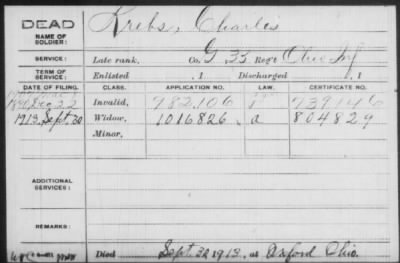 DEAD
NAME OF SOLDIER: Krebs, Charles
SERVICE: Late rank, Co. G 35 Reg't Ohio Inf
TERM OF SERVICE: Enlisted , 1 Discharged , 1
DATE OF FILING. CLASS. APPLICATION NO. LAW. CERTIFICATE NO.
22 Invalid, 782,106 739146
1913, Sept. 20 Widow, 1016826. a 804829
Minor,
ADDITIONAL SERVICES:
REMARKS:
Died Sept. 1913, at Oxford Ohio.